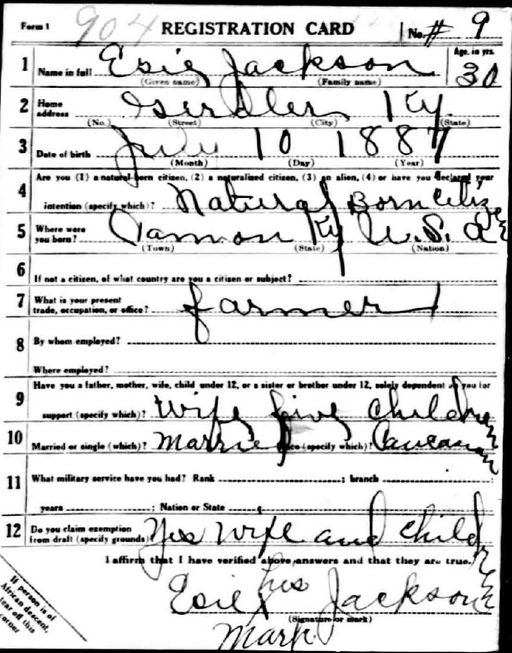 Form 1 904 REGISTRATION CARD No. # 9
1 Name in full Esie Jackson Age, in yrs. 30
(Given name) (Family name)
2 Home address Ky
(No.) (Street) (City) (State)
3 Date of birth July 10 1887
(Month) (Day) (Year)
4 Are you (1) a natural-born citizen, (2) a naturalized citizen, (3) an alien, (4) or have you declared your
intention (specify which)? Natural Born Citizen
5 Where were you born? Ky U.S.A
(Town) (State) (Nation)
6 If not a citizen, of what country are you a citizen or subject?
7 What is your present trade, occupation, or office? farmer
8 By whom employed?
Where employed?
9 Have you a father, mother, wife, child under 12, or a sister or brother under 12, solely dependent on you for
support (specify which)? Wife five children
10 Married or single (which)? Married Race (specify which)? Caucasian
11 What military service have you had? Rank ; branch
years ; Nation or State
12 Do you claim exemption from draft (specify grounds)? Yes Wife and children
I affirm that I have verified above answers and that they are true.
his
Esie x Jackson
(Signature or mark)
Mark
If person is of
African descent,
tear off this
corner